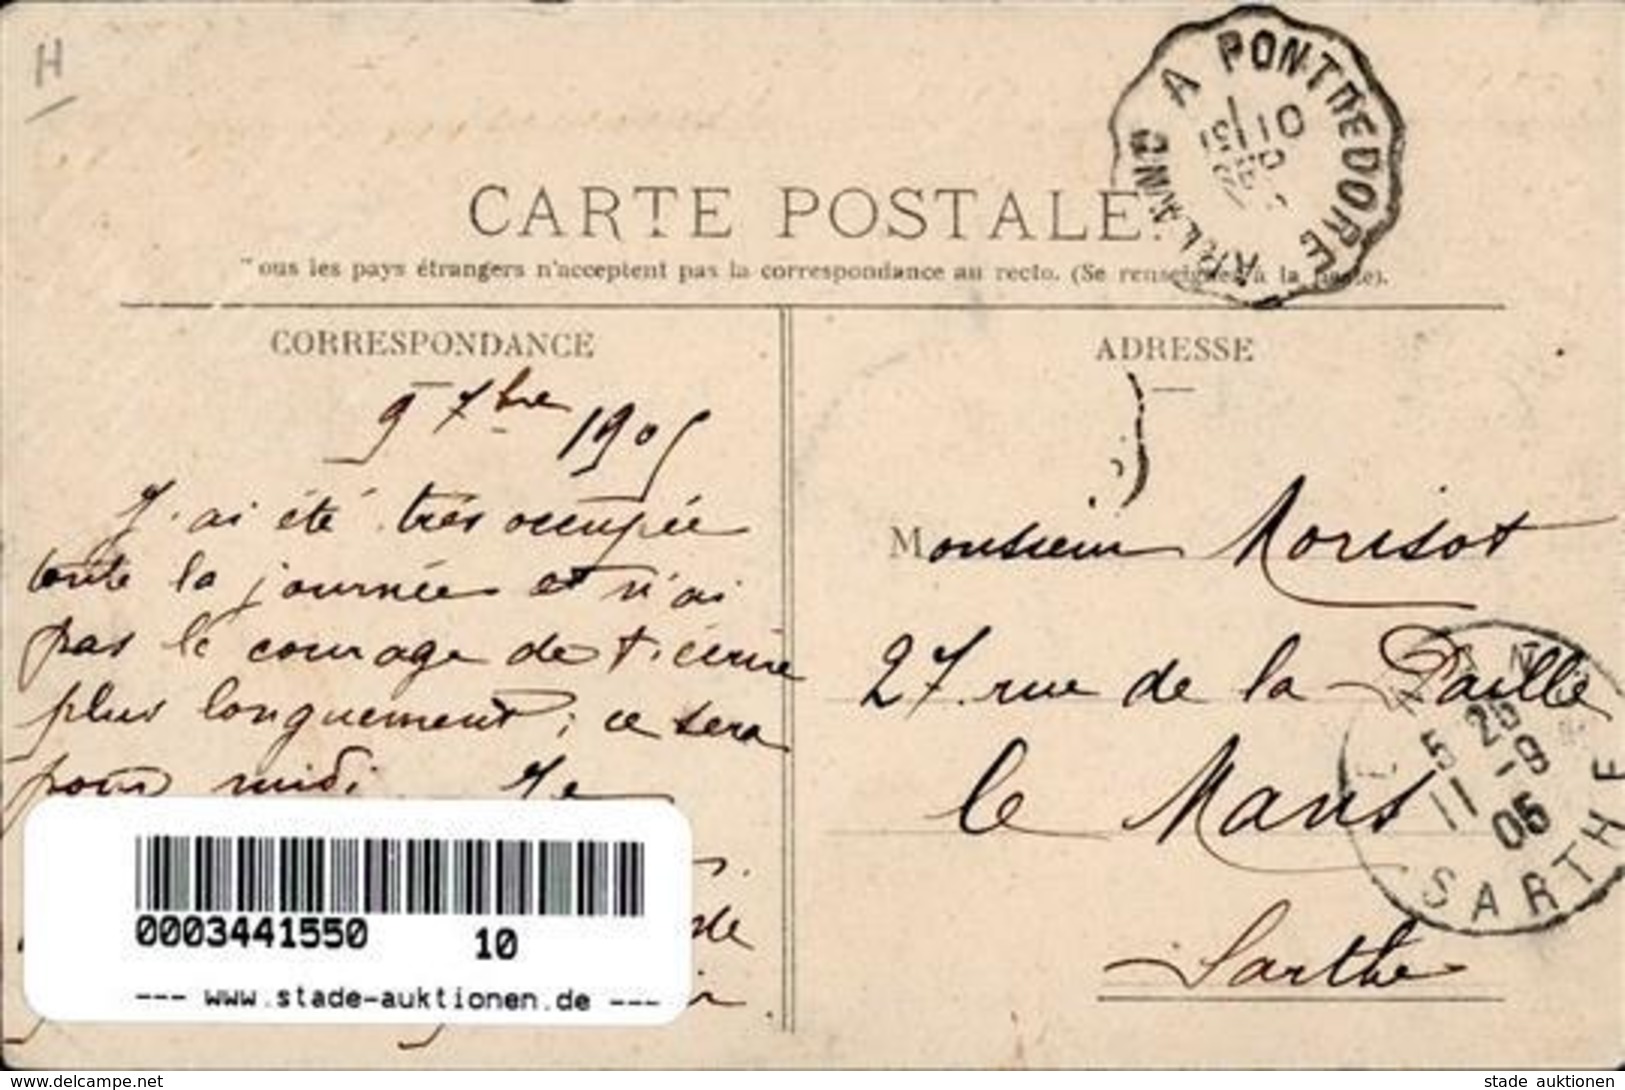 H
ARLANC A PONT DE DORE
10
CARTE POSTALE
ous les pays étrangers n'acceptent pas la correspondance au recto. (Se renseigner à la poste).
CORRESPONDANCE
ADRESSE
9 7bre 1905
J'ai été très occupée
toute la journée et n'ai
pas le courage de t'écrire
plus longuement; ce sera
pour midi. Je
Monsieur Morisot
27 rue de la Paille
le Mans
Sarthe
LE MANS
5 25
11 -9
05
SARTHE
0003441550 10
--- www.stade-auktionen.de ---
www.delcampe.net
stade auktionen